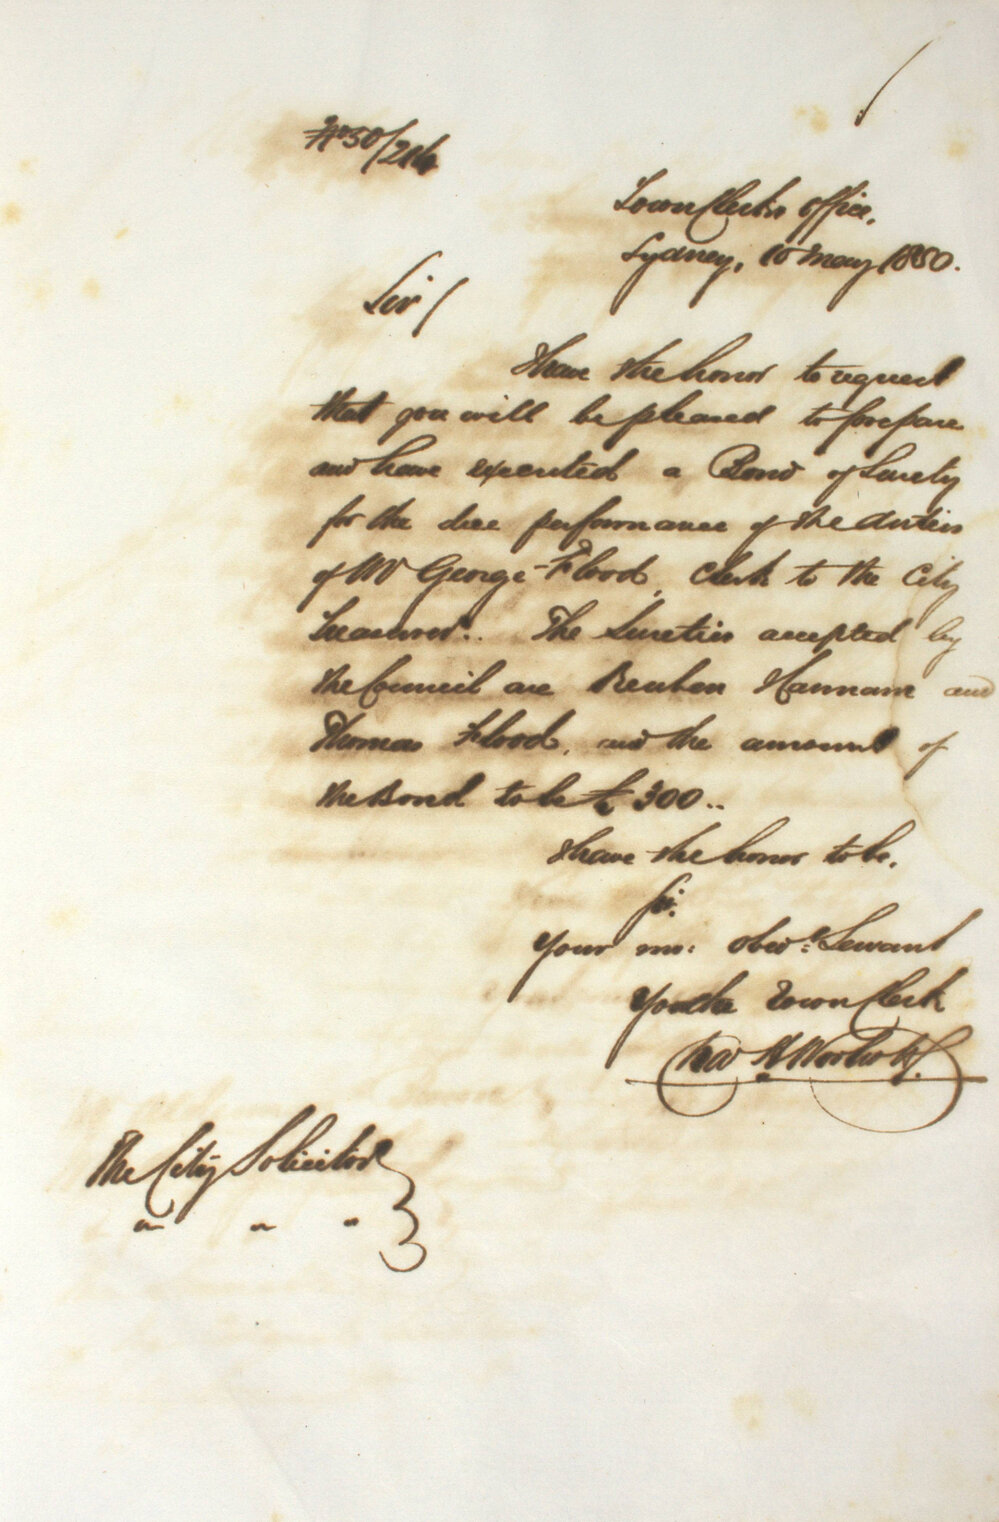 No 50/214
Town Clerk's Office,
Sydney, 10 May 1850.
Sir/
I have the honor to request
that you will be pleased to prepare
and have executed a Bond of Surety
for the due performance of the duties
of Mr George Flood, Clerk to the City
Treasurer.. The Sureties accepted by
the Council are Reuben Hannam and
Thomas Flood, and the amount of
the Bond to be £300..
I have the honor to be,
Sir.
Your mo: obed.t Servant
Town Clerk
The City Solicitor